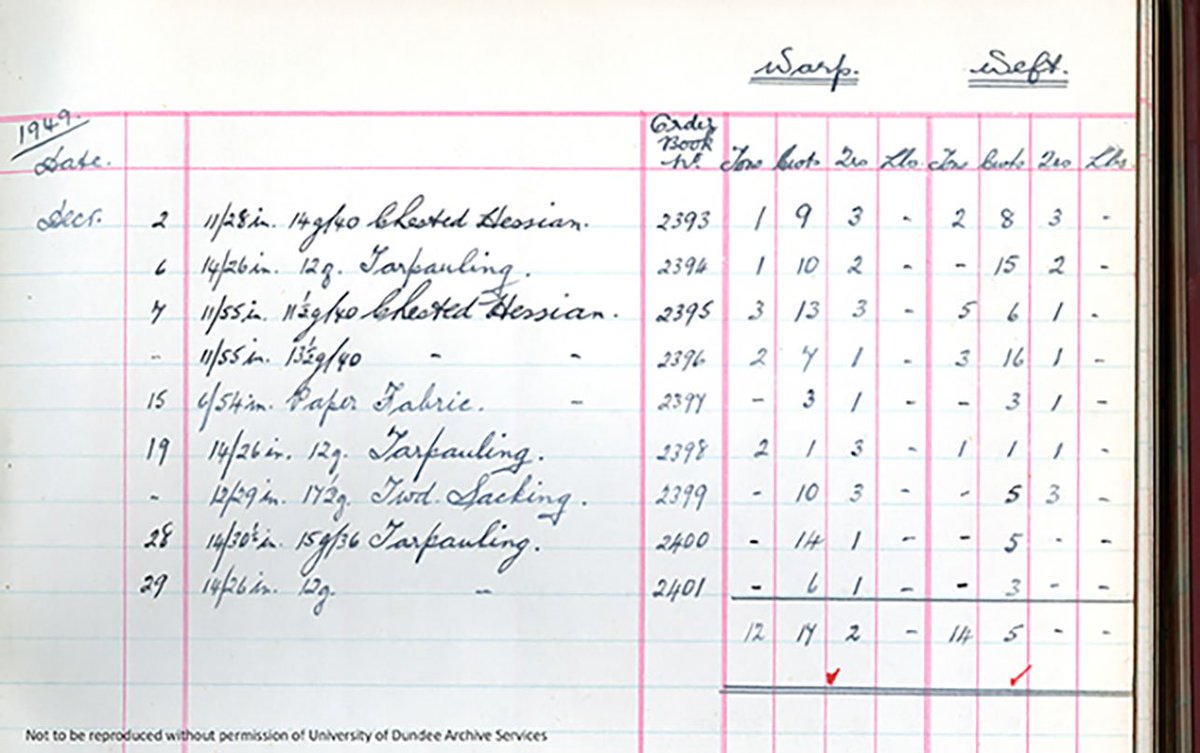 Warp. Weft.
1949.
Date. Order Book No. Tons Cwts Qrs Lbs Tons Cwts Qrs Lbs
Decr. 2 11/28 in. 14g/40 Chested Hessian. 2393 1 9 3 - 2 8 3 -
6 14/26 in. 12g. Tarpauling. 2394 1 10 2 - - 15 2 -
7 11/55 in. 11½g/40 Chested Hessian. 2395 3 13 3 - 5 6 1 -
- 11/55 in. 13½g/40 - - 2396 2 7 1 - 3 16 1 -
15 6/54 in. Paper Fabric. - 2397 - 3 1 - - 3 1 -
19 14/26 in. 12g. Tarpauling. 2398 2 1 3 - 1 1 1 -
- 12/29 in. 17½g. Twd. Sacking. 2399 - 10 3 - - 5 3 -
28 14/30½ in. 15g/36 Tarpauling. 2400 - 14 1 - - 5 - -
29 14/26 in. 12g. - 2401 - 6 1 - - 3 - -
12 17 2 - 14 5 - -
Not to be reproduced without permission of University of Dundee Archive Services